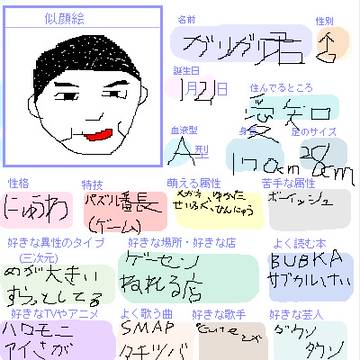 似顔絵
名前
性別
ガリガリ君
誕生日
1月21日
住んでるところ
愛知
血液型
身長
足のサイズ
A型
170cm
28cm
性格
特技
萌える属性
苦手な属性
にゅうわ
パズル番長
(ゲーム)
めがね
せいふく、ひんにゅう
ボーイッシュ
好きな異性のタイプ
(三次元)
好きな場所・好きな店
よく読む本
めが大きい
ずっとしてる
ゲーセン
ねれる店
BUBKA
サブカルけい
好きなTVやアニメ
よく歌う曲
好きな歌手
好きな芸人
ハロモニ
アイさが
SMAP
タキツバ
℃-ute
ダウン
タウン